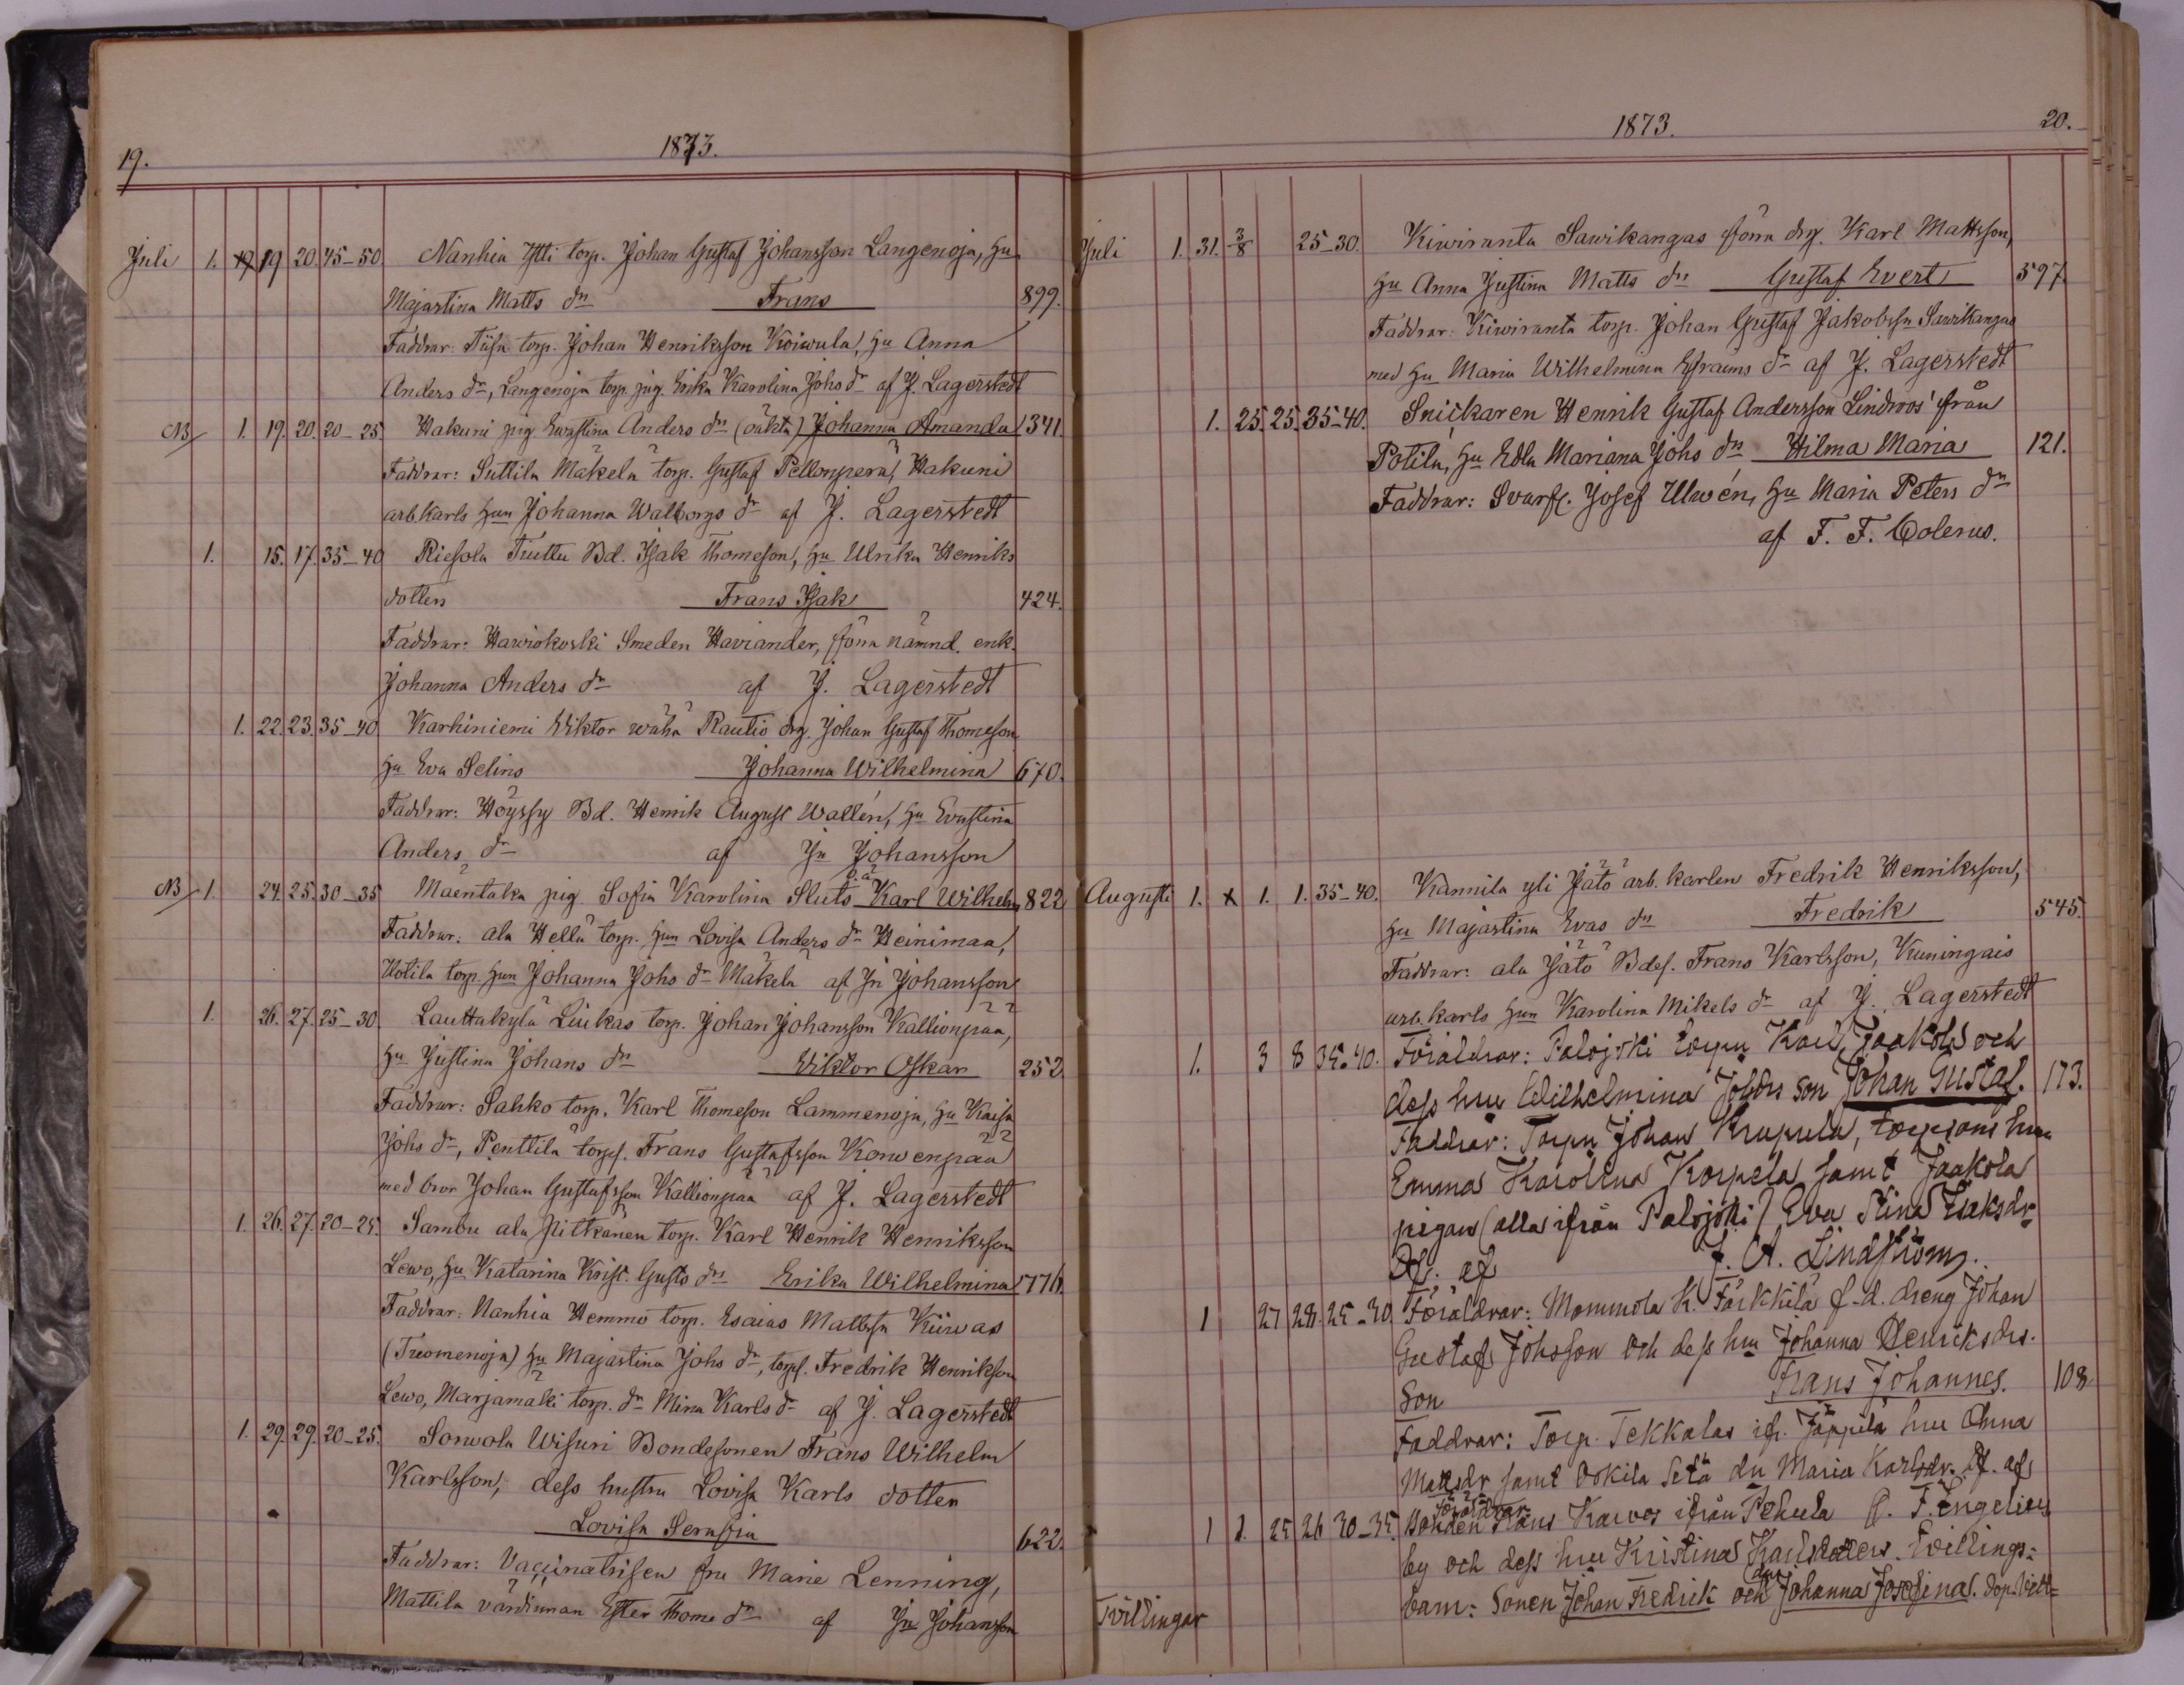 19.
1873.
Juli 1. 19 19 20. 45-50. Nanhia Ytti torp. Johan Gustaf Johansson Langenoja, hu
Majastina Matts dr Frans 899.
Faddrar: Tiisa torp. Johan Henriksson Koiwula, hu Anna
Anders dr, Langenoja torp. pig. Erika Karolina Johs dr af J. Lagerstedt
NB 1. 19. 20. 20-25 Hakuni pig Ewastina Anders dr (oäkta) Johanna Amanda 1341.
Faddrar: Suttila Mäkelä torp. Gustaf Pellonperä, Hakuni
arb.karls hun Johanna Walborgs dr af J. Lagerstedt
1. 15. 17. 35-40 Riesola Tuttu Bd. Isak Thomeson, hu Ulrika Henriks
dotter Frans Isak 424.
Faddrar: Hawiokoski Smeden Haviander, förra nämnd. enk.
Johanna Anders dr af J. Lagerstedt
1. 22. 23. 35-40 Karhiniemi Wiktor wähä Rautio drg. Johan Gustaf Thomeson
hu Eva Selins Johanna Wilhelmina 670.
Faddrar: Höyssy Bd. Henrik August Wallén, hu Evastina
Anders dr af Jn Johansson
NB 1. 24. 25. 30-35 Mäentaka pig Sofia Karolina Sluts o.ä. Karl Wilhelm 822
Faddrar: ala Hellä torp. hun Lovisa Anders dr Heinimaa,
Uotila torp. hun Johanna Johs dr Mäkelä af Jn Johansson
1. 26. 27. 25-30. Lauttakylä Liukas torp. Johan Johansson Kallionpää,
hu Justina Johans dr Wiktor Oskar 252
Faddrar: Sahko torp. Karl Thomeson Lammenoja, hu Kaisa
Johs dr, Penttilä torps. Frans Gustafsson Korwenpää
med bror Johan Gustafsson Kallionpää af J. Lagerstedt
1. 26. 27. 20-25. Sambu ala Pitkänen torp. Karl Henrik Henriksson
Lewo, hu Katarina Krist. Gusts dr Erika Wilhelmina 1176.
Faddrar: Nanhia Hemmo torp. Esaias Mattsn Kiiwas
(Tuomenoja) hu Majastina Johs dr, torps. Fredrik Henriksson
Lewo, Marjamäki torp. dr Mina Karls dr af J. Lagerstedt
1. 29. 29. 20-25. Sonwola Wisuri Bondesonen Frans Wilhelm
Karlsson, dess hustru Lovisa Karls dotter
Lovisa Serafia 622.
Faddrar: Vaccinatrisen fru Marie Lenning,
Mattila värdinnan Ester Thome dr af Jn Johansson
1873. 20.
Juli 1. 31. 3/8 25-30. Kiwiranta Sawikangas förra drg. Karl Mattsson,
hu Anna Justina Matts dr Gustaf Evert 597.
Faddrar: Kiwiranta torp. Johan Gustaf Jakobssn Sawikangas
med hu Maria Wilhelmina Efraims dr af J. Lagerstedt
1. 25. 25. 35-40. Snickaren Henrik Gustaf Andersson Lindroos från
Potila, hu Edla Mariana Johs dr Hilma Maria 121.
Faddrar: Svarf. Josef Ulwén, hu Maria Peters dr
af F. F. Colerus.
Augusti 1. x 1. 1. 35-40. Kannila yli Jätö arb. karlen Fredrik Henriksson,
hu Majastina Evas dr Fredrik 545.
Faddrar: ala Jätö Bdes. Frans Karlsson, Kuningais
arb. karls hun Karolina Mikels dr af J. Lagerstedt
1. 3 8 35-40. Föräldrar: Palojoki torpn Karl Jaakola och
dess hu Wilhelmina Johdrs son Johan Gustaf. 173.
Faddrar: Torpn Johan Krapula, torparns hu
Emma Karolina Korpela samt Jaakola
pigan (alla ifrån Palojoki) Eva Stina Isaksdr
Df. af J. A. Lindström.
1 27 28. 25-30. Föräldrar: Mommola K. Färkkilä f.d. dreng Johan
Gustaf Johsson och dess hu Johanna Henriksdrs.
Son Frans Johannes. 108
Faddrar: Torp. Tekkalas ifr. Jäppilä hu Anna
Mattsdr samt Ookila Setä dn Maria Karlsdr. Df. af
Föräldrar
1 1. 25 26 30-35. Bonden Frans Karvos ifrån Pehula F. Engelius
by och dess hu Kristina Karlsdotters. Tvillings-
Tvillingar barn: Sonen Johan Fredrik och dn Johanna Josefina. Dopvitt-